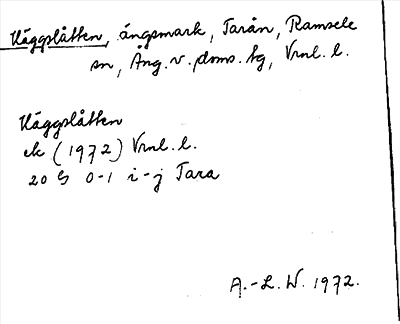 Häggslåtten, ängsmark, Tarån, Ramsele
sn, Ång. v. doms. hg, Vrnl. l.
Häggslåtten
ek (1972) Vrnl. l.
20 G 0-1 i-j Tara
A.-L. W. 1972.